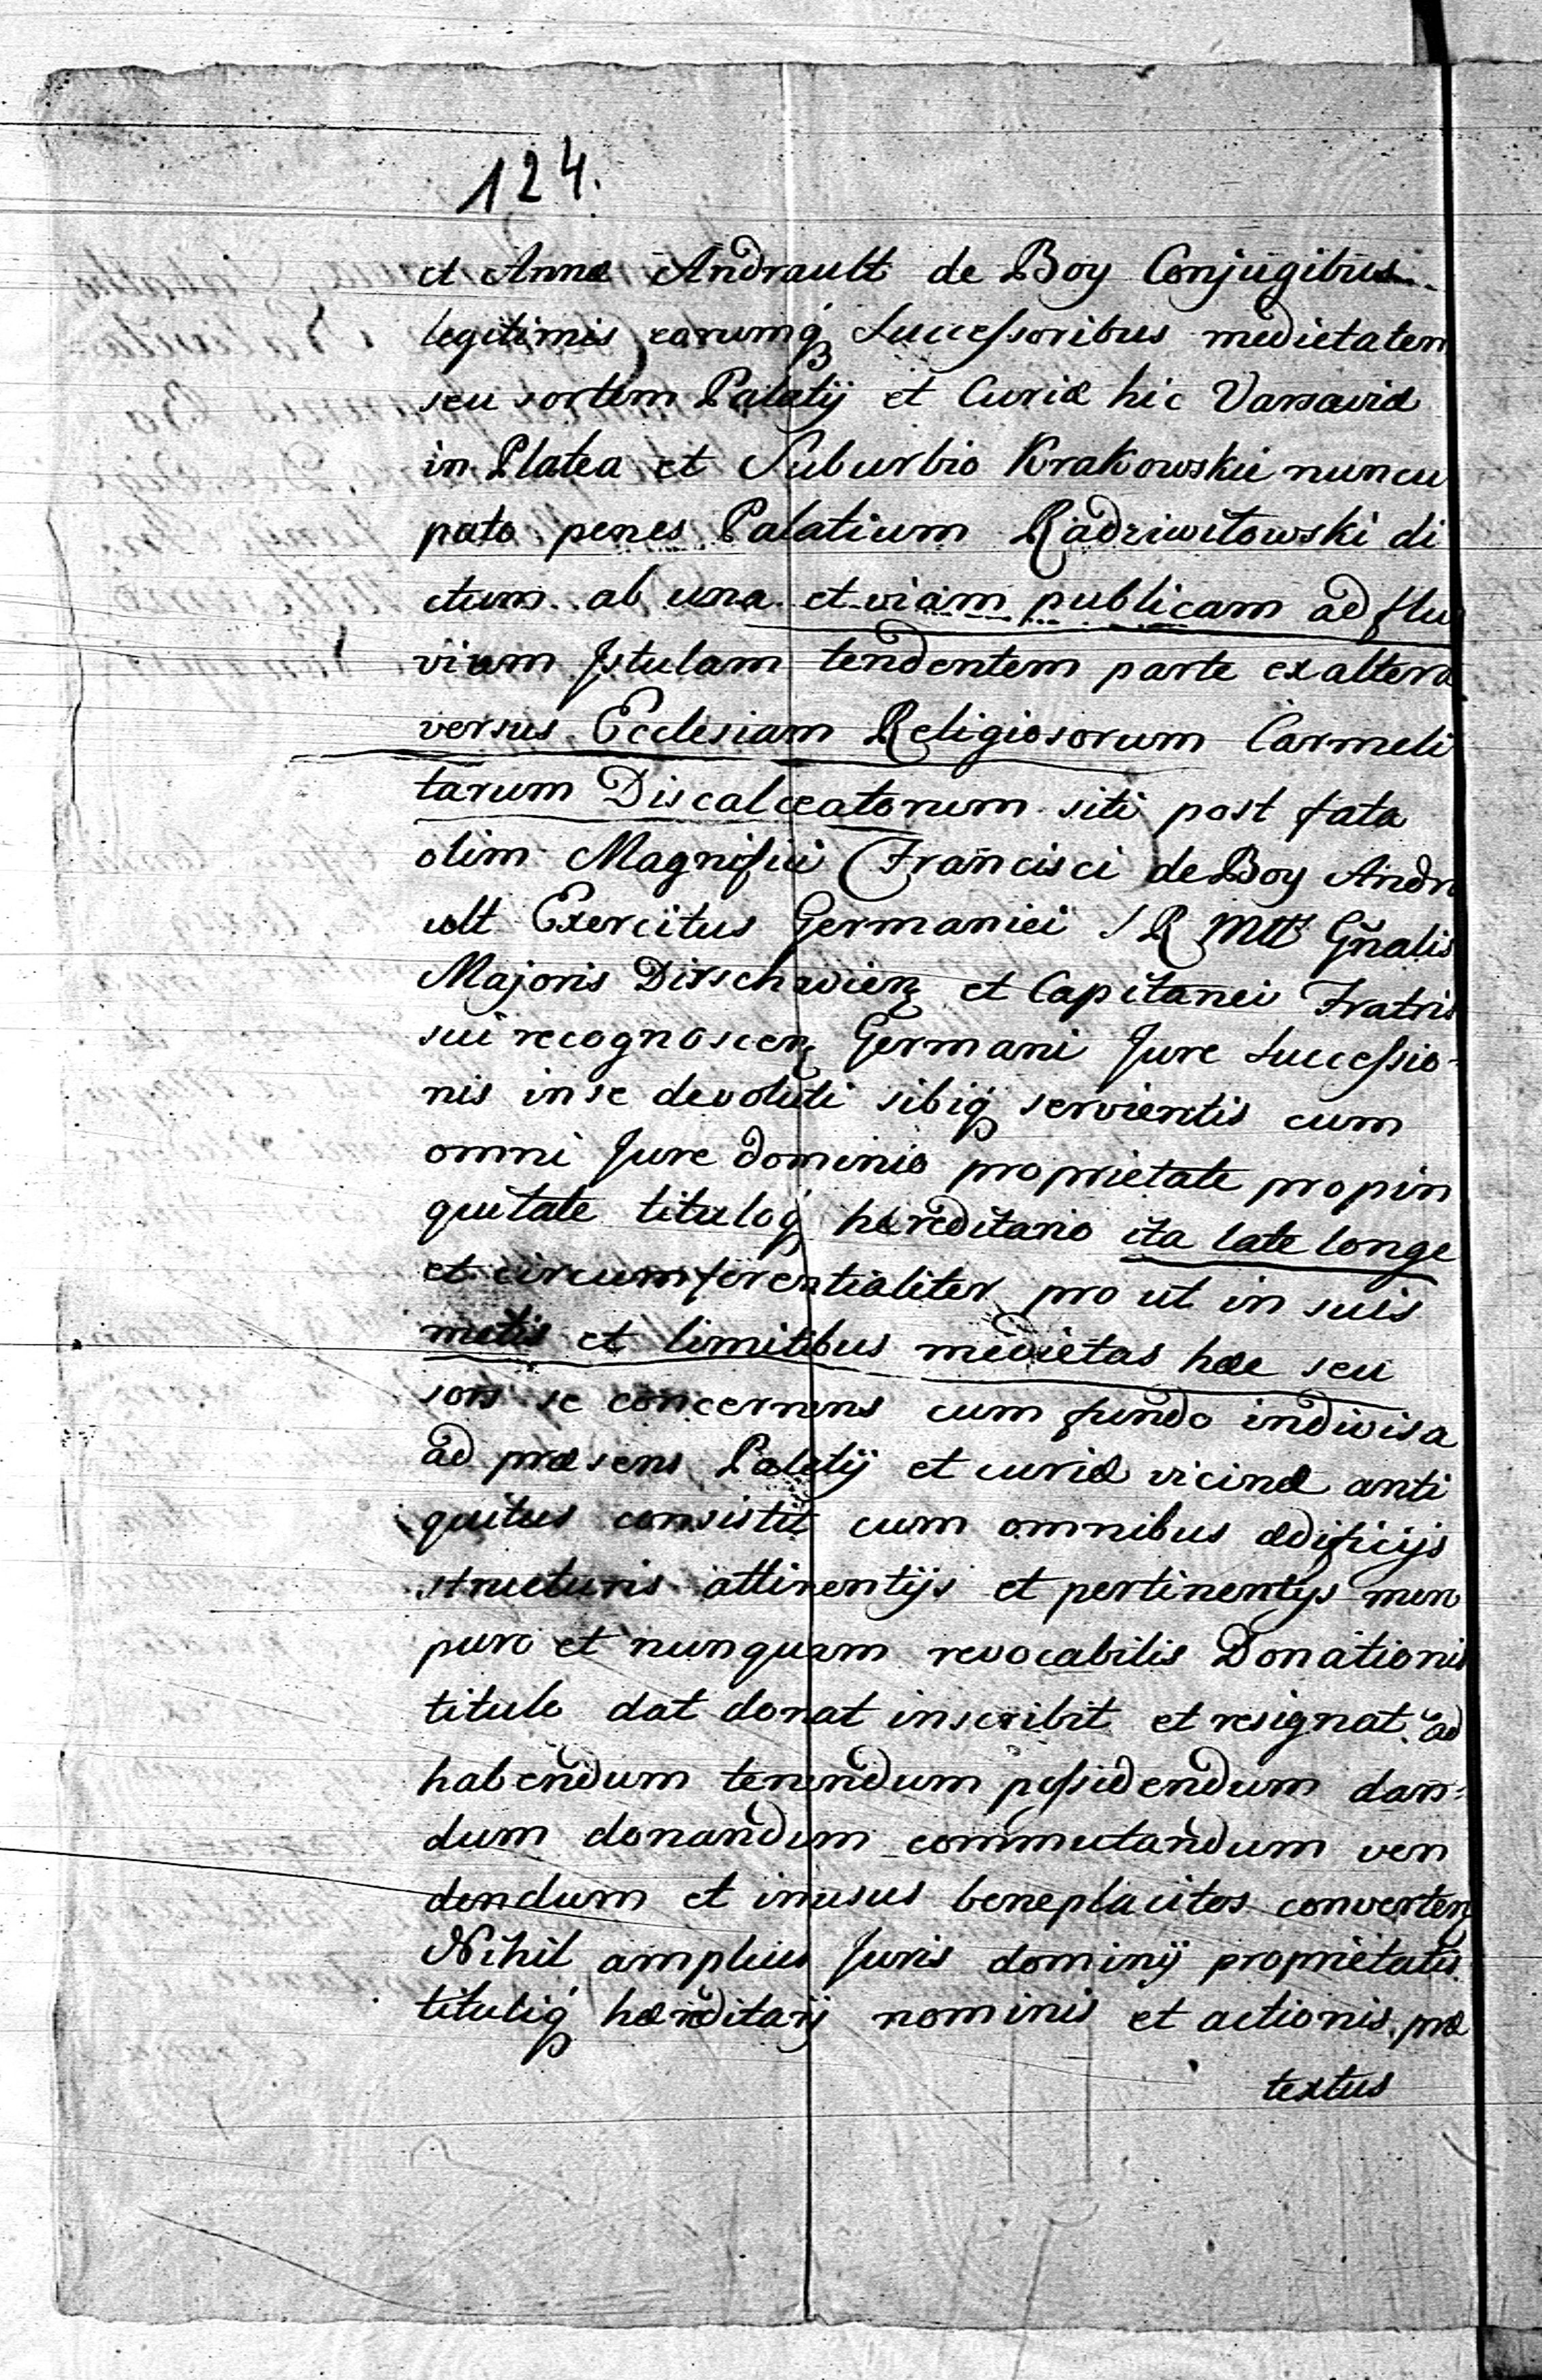 124.
et Annæ Andrault de Boy Conjugibus
legitimis earumq́ Successoribus medietatem
seu sortem Palatij et Curiæ hic Varsaviæ
in Platea et Suburbio Krakowskie nuncu
pato penes Palatium Radziwiłowski di
ctum ab una et viam publicam ad flu
vium Istulam tendentem parte ex altera
versus Ecclesiam Religiosorum Carmeli
tarum Discalceatorum siti post fata
olim Magnifici Francisci de Boy Andra
ult Exercitus Germanici S R Mttis Gñalis
Majoris Dirschwien et Capitanei Fratris
sui recognoscen Germani Jure Successio-
nis in se devoluti sibiq́ servientis cum
omni Jure dominio proprietate propin
quitate tituloq́ hæreditario ita late longe
et circumferentialiter pro ut in suis
metis et limitibus medietas hæc seu
sors se concernens cum fundo indivisa
ad præsens Palatij et curiæ vicinæ anti
quitus consistit cum omnibus ædificijs
structuris attinentijs et pertinentijs mero
puro et nunquam revocabilis Donationis
titulo dat donat inscribit et resignat ad
habendum tenendum possidendum dan-
dum donandum commutandum ven
dendum et in usus beneplacitos converten
Nihil amplius Juris dominij proprietatis
tituliq́ hæreditarij nominis et actionis præ
textus